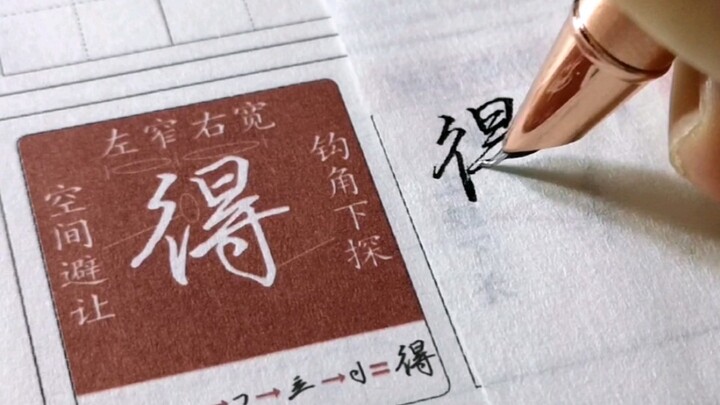 左窄右宽
空间避让
得
钩角下探
→ → 㐄 → 寸 = 得
得